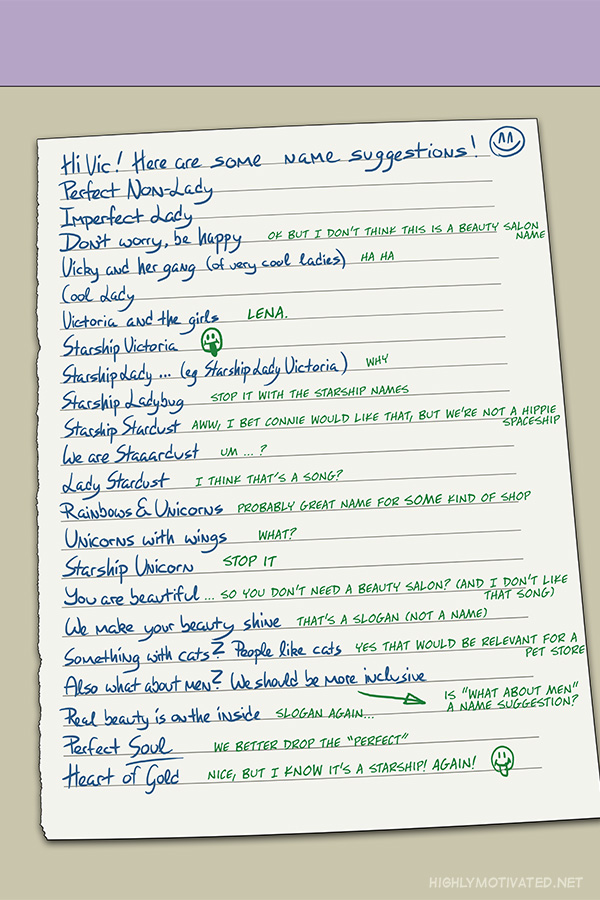 Hi Vic! Here are some name suggestions!
Perfect Non-Lady
Imperfect Lady
Don't worry, be happy OK BUT I DON'T THINK THIS IS A BEAUTY SALON
NAME
Vicky and her gang (of very cool ladies) HA HA
Cool Lady
Victoria and the girls LENA.
Starship Victoria
Starship Lady ... (eg Starship Lady Victoria) WHY
Starship Ladybug STOP IT WITH THE STARSHIP NAMES
Starship Stardust AWW, I BET CONNIE WOULD LIKE THAT, BUT WE'RE NOT A HIPPIE
SPACESHIP
We are Staaardust UM ... ?
Lady Stardust I THINK THAT'S A SONG?
Rainbows & Unicorns PROBABLY GREAT NAME FOR SOME KIND OF SHOP
Unicorns with wings WHAT?
Starship Unicorn STOP IT
You are beautiful ... SO YOU DON'T NEED A BEAUTY SALON? (AND I DON'T LIKE
THAT SONG)
We make your beauty shine THAT'S A SLOGAN (NOT A NAME)
Something with cats? People like cats YES THAT WOULD BE RELEVANT FOR A
PET STORE
Also what about men? We should be more inclusive
IS "WHAT ABOUT MEN"
A NAME SUGGESTION?
Real beauty is on the inside SLOGAN AGAIN...
Perfect Soul WE BETTER DROP THE "PERFECT"
Heart of Gold NICE, BUT I KNOW IT'S A STARSHIP! AGAIN!
HIGHLYMOTIVATED.NET